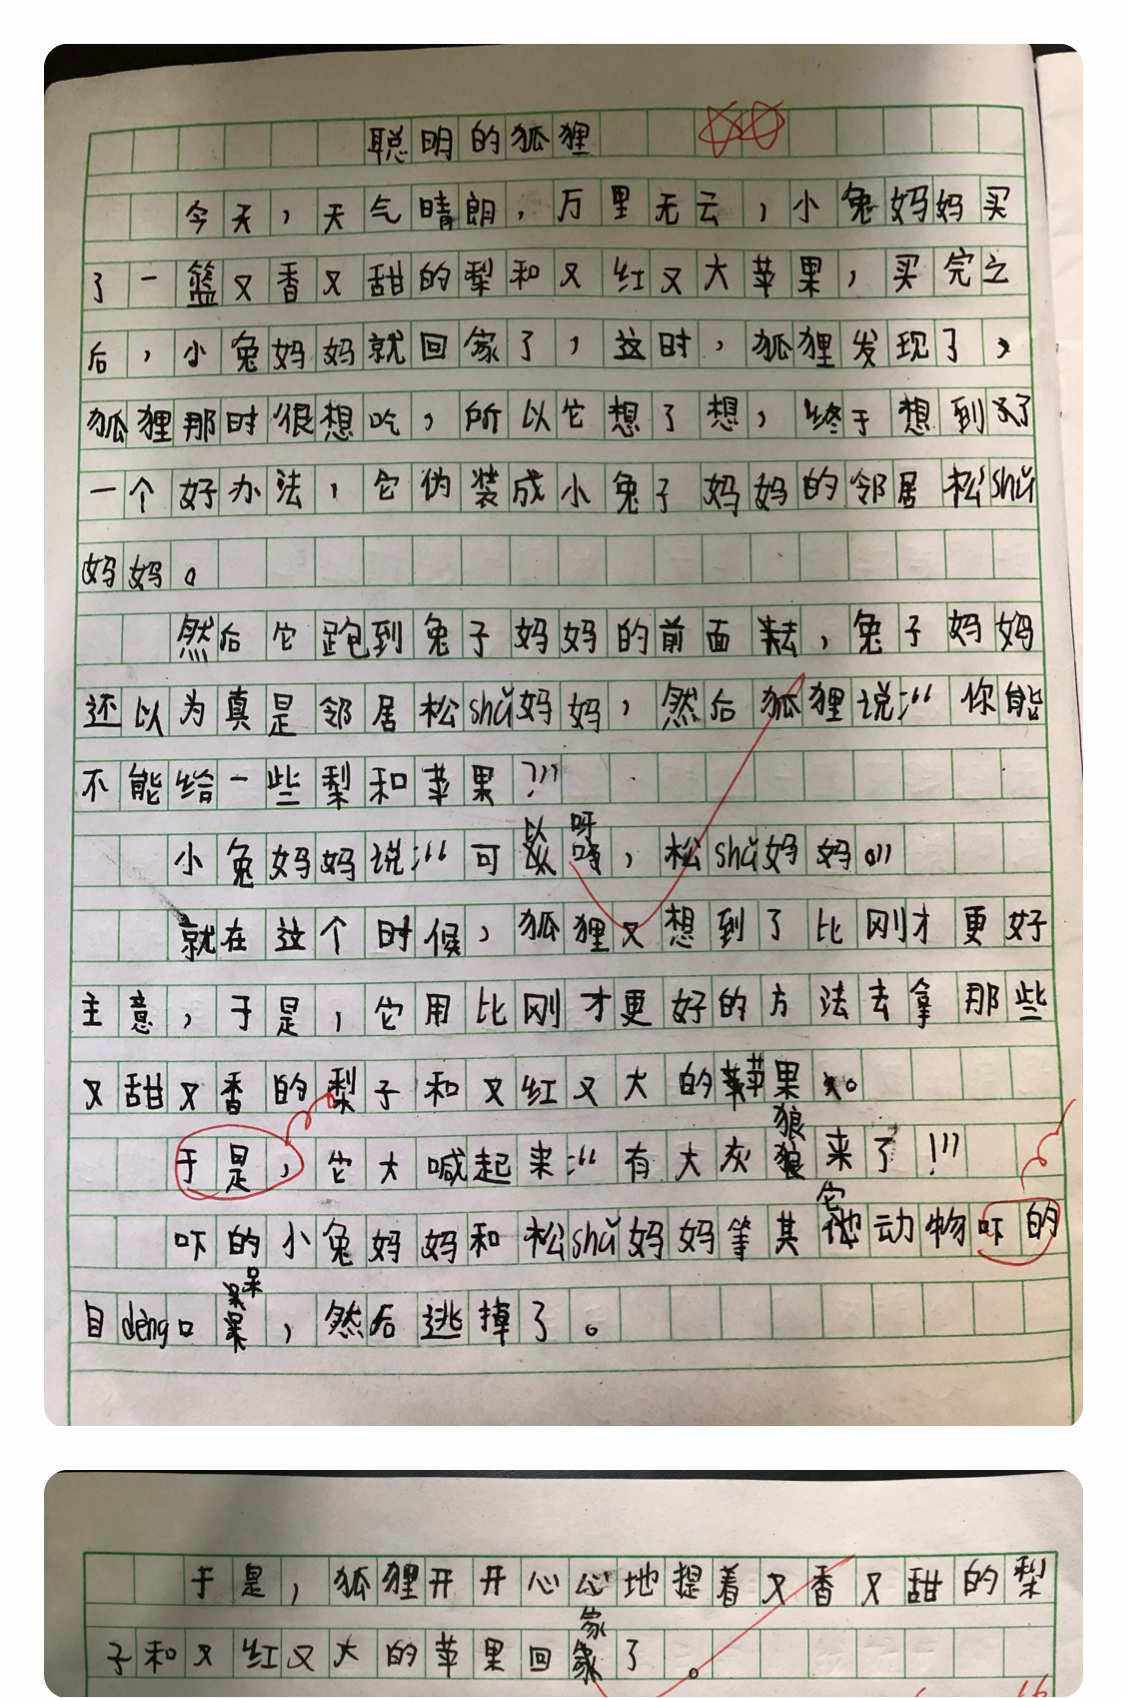 聪明的狐狸
今天，天气晴朗，万里无云，小兔妈妈买
了一篮又香又甜的梨和又红又大苹果，买完之
后，小兔妈妈就回家了，这时，狐狸发现了，
狐狸那时很想吃，所以它想了想，终于想到了
一个好办法，它伪装成小兔子妈妈的邻居松shǔ
妈妈。
然后它跑到兔子妈妈的前面去，兔子妈妈
还以为真是邻居松shǔ妈妈，然后狐狸说：“你能
不能给一些梨和苹果？”
小兔妈妈说：“可以呀，松shǔ妈妈。”
就在这个时候，狐狸又想到了比刚才更好
主意，于是，它用比刚才更好的方法去拿那些
又甜又香的梨子和又红又大的苹果。
于是，它大喊起来：“有大灰狼来了！”
吓的小兔妈妈和松shǔ妈妈等其它动物吓的
目dèng口呆，然后逃掉了。
于是，狐狸开开心心地提着又香又甜的梨
子和又红又大的苹果回家了。